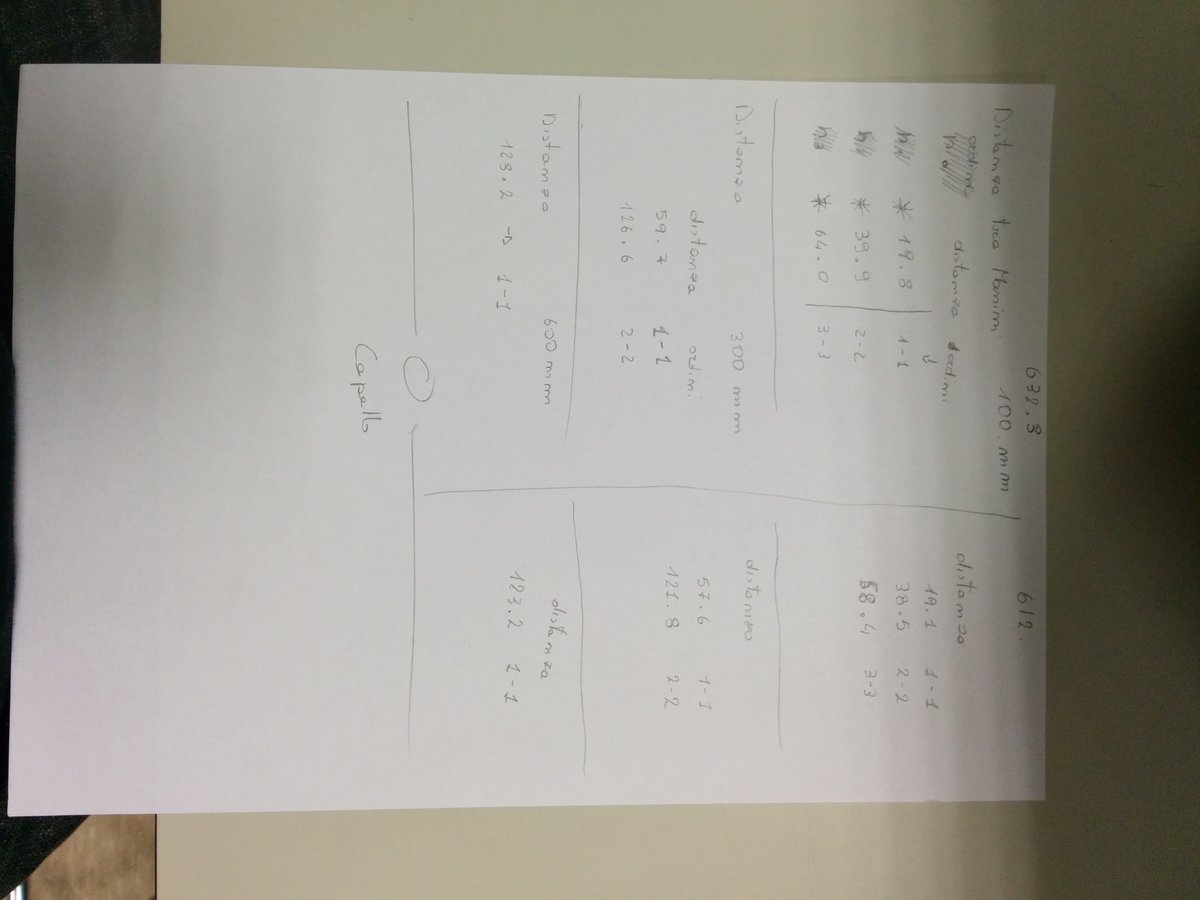 632.8
Distanza tra Minimi 100 mm
distanza ordini
↓
* 19.8 1-1
* 39.9 2-2
* 64.0 3-3
Distanza 300 mm
distanza ordini
59.7 1-1
126.6 2-2
Distanza 600 mm
128.2 → 1-1
612.
distanza
19.1 1-1
38.5 2-2
58.4 3-3
distanza
57.6 1-1
121.8 2-2
distanza
123.2 1-1
Capello